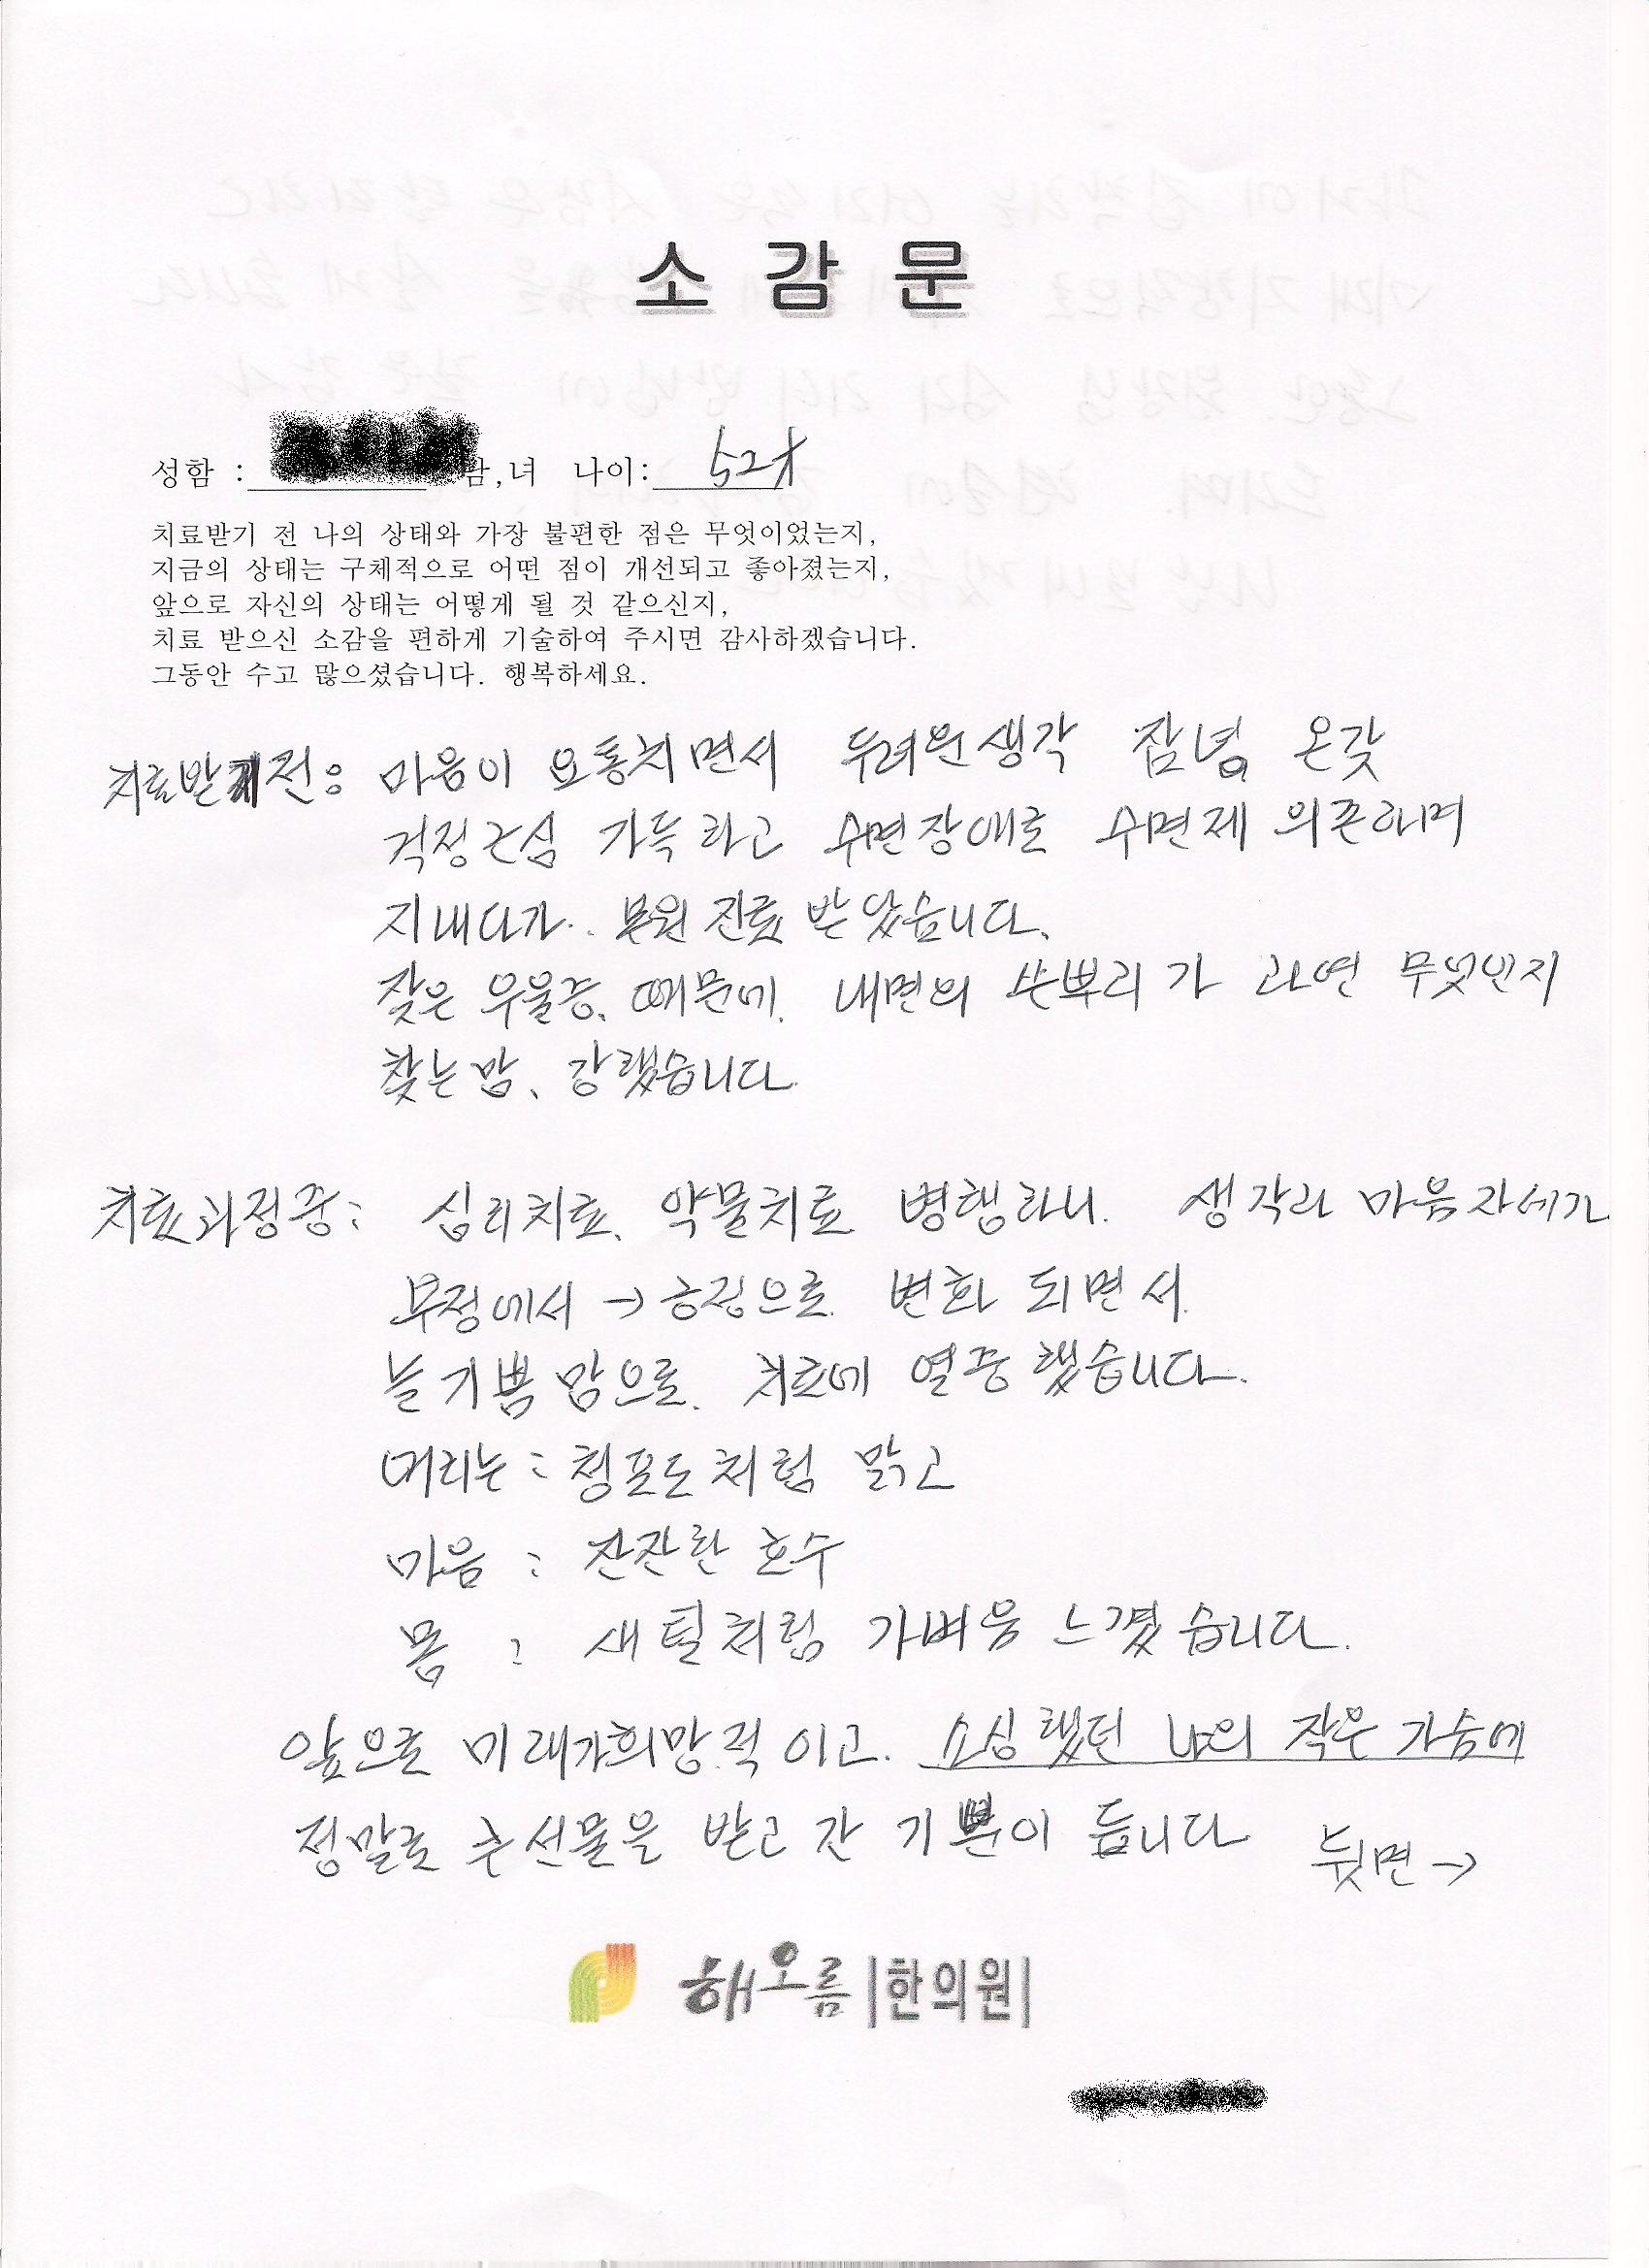 소 감 문
성함 : 남,녀 나이: 52才
치료받기 전 나의 상태와 가장 불편한 점은 무엇이었는지,
지금의 상태는 구체적으로 어떤 점이 개선되고 좋아졌는지,
앞으로 자신의 상태는 어떻게 될 것 같으신지,
치료 받으신 소감을 편하게 기술하여 주시면 감사하겠습니다.
그동안 수고 많으셨습니다. 행복하세요.
치료받기전: 마음이 요통치면서 두려원생각 잡념 온갖
걱정근심 가득하고 수면장애로 수면제 의존하며
지내다가.. 본원 진료 받았습니다.
잦은 우울증. 때문에. 내면의 쓴뿌리가 과연 무엇인지
찾는맘、강했습니다
치료과정중: 심리치료. 약물치료 병행하니. 생각과 마음자세가
부정에서 → 긍정으로. 변화 되면서.
늘기쁨맘으로. 치료에 열중했습니다.
머리는: 청포도처럼 맑고
마음 : 잔잔한 호수
몸 : 새털처럼 가벼움 느꼈습니다.
앞으로 미래가희망적이고. 소심했던 나의 작은 가슴에
정말로 큰선물을 받고 간 기쁨이 듭니다 뒷면→
해오름|한의원|